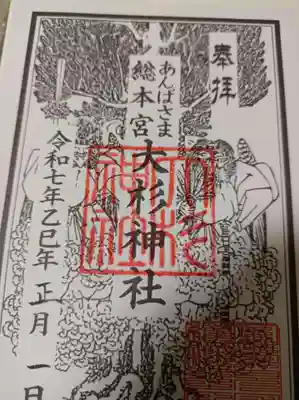 奉拝
あんばさま
総本宮
大杉神社
令和七年乙巳年正月一日